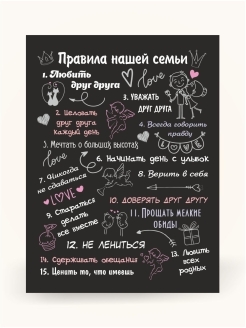 Правила нашей семьи
1. Любить
друг друга
love
2. Целовать
друг друга
каждый день
3. УВАЖАТЬ
ДРУГ ДРУГА
4. Всегда говорить
правду
LOVE
5. Мечтать о больших высотах
love
6. Начинать день с улыбок
7. Никогда
не сдаваться
8. Верить в себя
LOVE
9. Стараться
делать
все вместе
10. ДОВЕРЯТЬ ДРУГ ДРУГУ
11. Прощать мелкие
обиды
12. НЕ ЛЕНИТЬСЯ
13. Любить
всех
родных
14. Сдерживать обещания
15. Ценить то, что имеешь